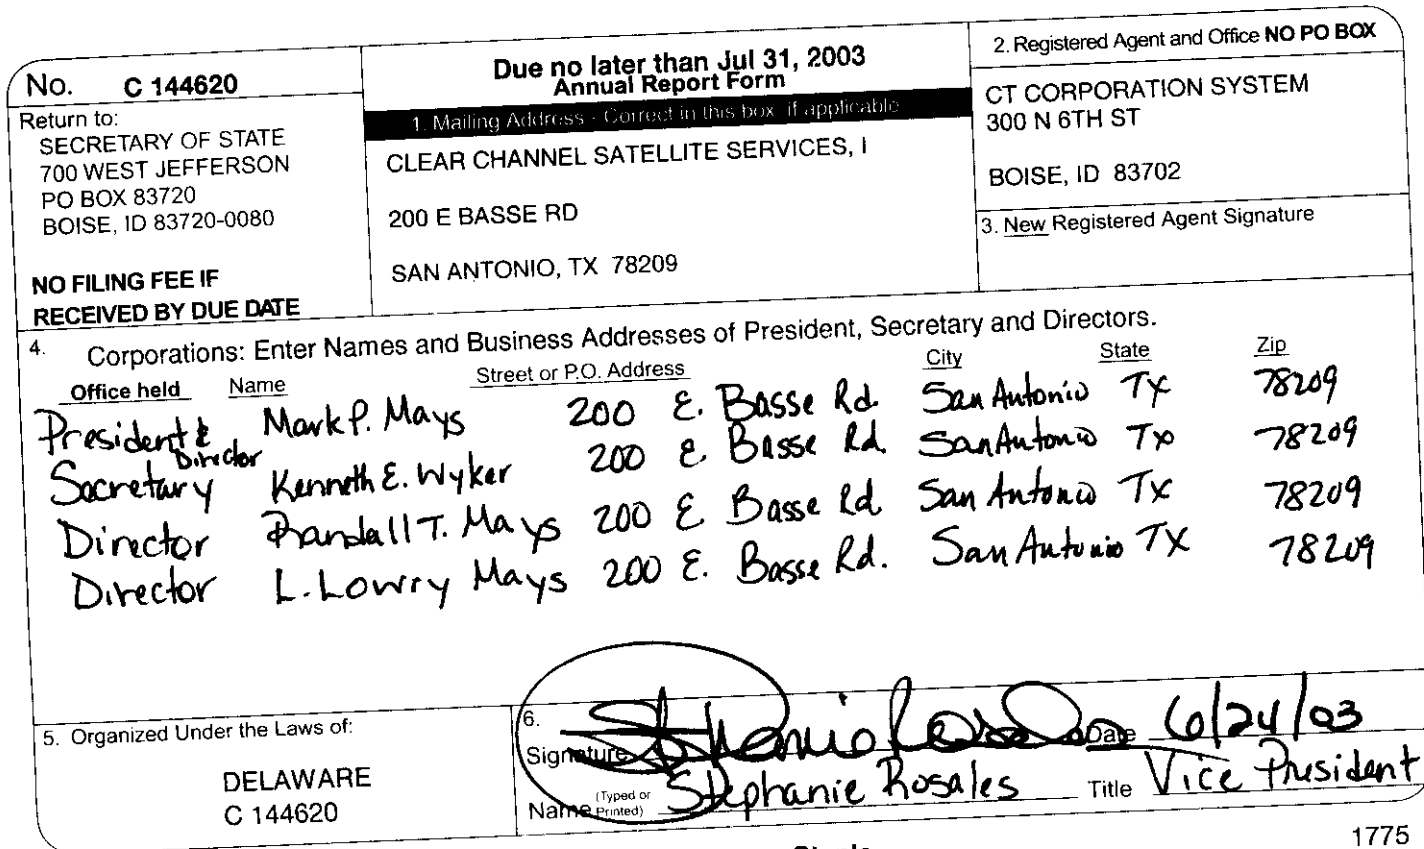 No. C 144620
Return to:
SECRETARY OF STATE
700 WEST JEFFERSON
PO BOX 83720
BOISE, ID 83720-0080
NO FILING FEE IF
RECEIVED BY DUE DATE
Due no later than Jul 31, 2003
Annual Report Form
1. Mailing Address - Correct in this box if applicable
CLEAR CHANNEL SATELLITE SERVICES, I
200 E BASSE RD
SAN ANTONIO, TX 78209
2. Registered Agent and Office NO PO BOX
CT CORPORATION SYSTEM
300 N 6TH ST
BOISE, ID 83702
3. New Registered Agent Signature
4. Corporations: Enter Names and Business Addresses of President, Secretary and Directors.
Office held Name Street or P.O. Address City State Zip
President & Director Mark P. Mays 200 E. Basse Rd. San Antonio TX 78209
Secretary Kenneth E. Wyker 200 E Basse Rd. San Antonio TX 78209
Director Randall T. Mays 200 E Basse Rd. San Antonio TX 78209
Director L. Lowry Mays 200 E. Basse Rd. San Antonio TX 78209
5. Organized Under the Laws of:
DELAWARE
C 144620
6.
Signature Stephanie Rosales Date 6/24/03
Name (Typed or Printed) Stephanie Rosales Title Vice President
1775